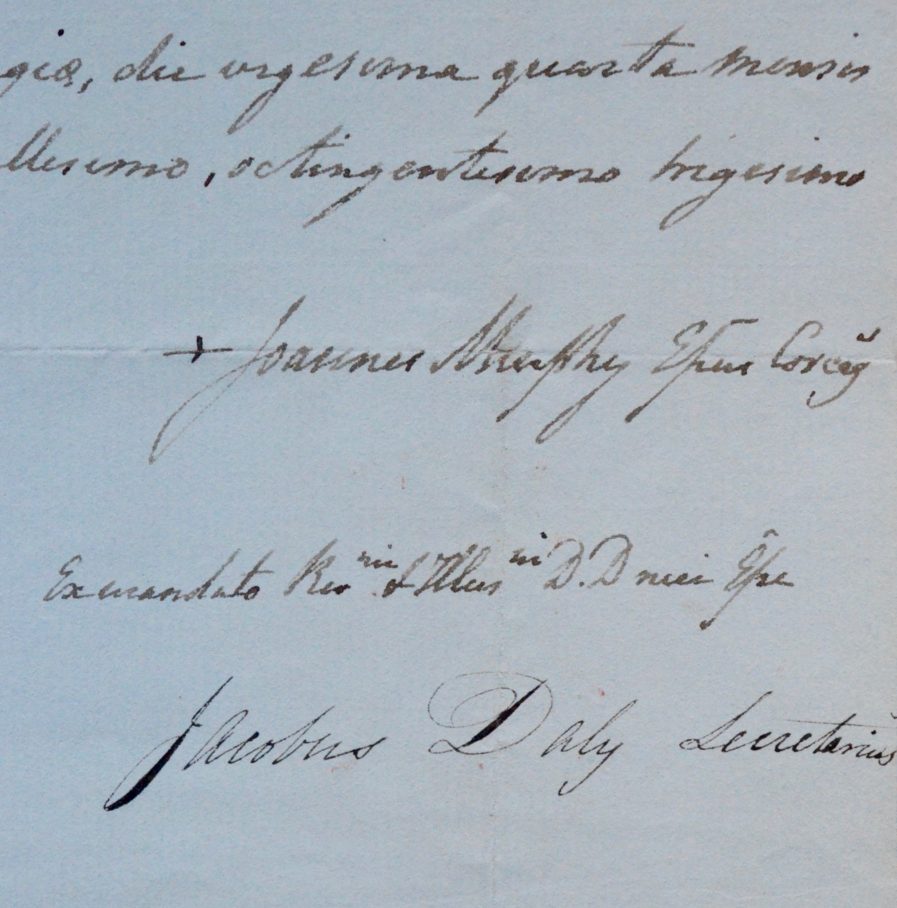 giæ, die vigesima quarta mensis
llesimo, octingentesimo trigesimo
+ Joannes Murphy Epus Corcag
Ex mandato Rev^mi & Illus^mi D. D mei Epi
Jacobus Daly Secretarius